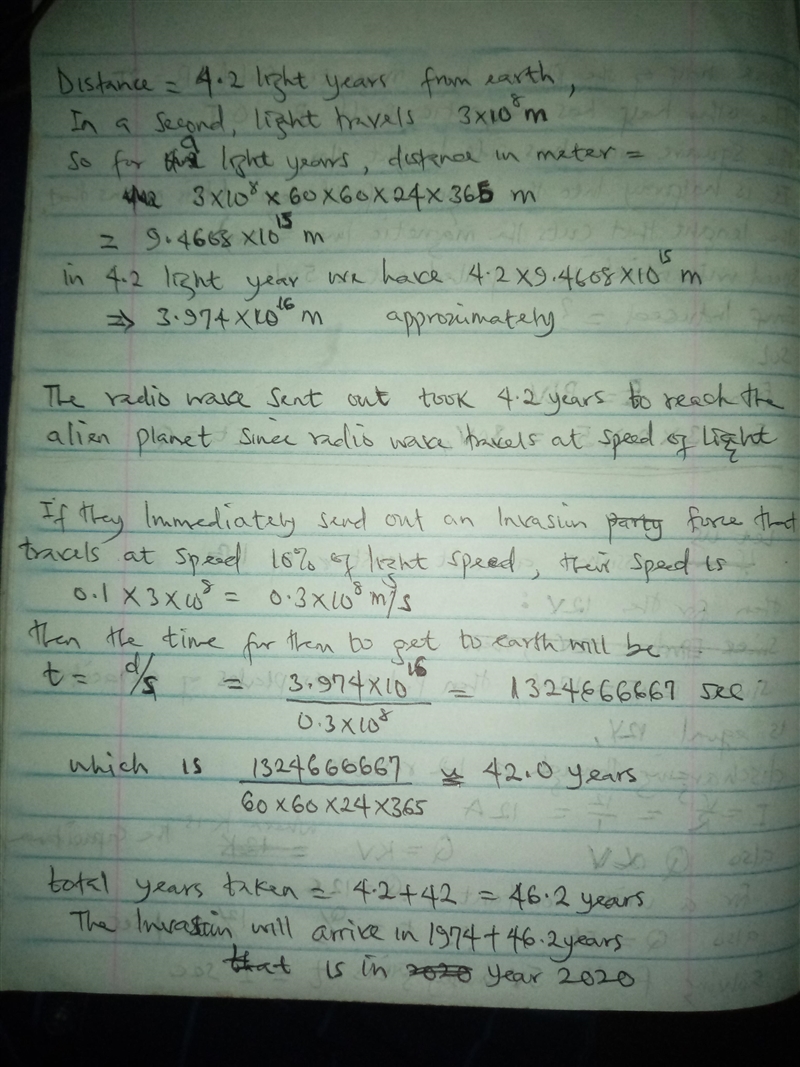 Distance = 4.2 light years from earth,
In a second, light travels 3×10⁸m
So for a light years, distance in meter =
3×10⁸ × 60×60×24×365 m
= 9.4608×10¹⁵ m
in 4.2 light year we have 4.2×9.4608×10¹⁵ m
⇒ 3.974×10¹⁶ m approximately
The radio wave sent out took 4.2 years to reach the
alien planet since radio wave travels at speed of light
If they Immediately send out an Invasion party force that
travels at speed 10% of light speed, their speed is
0.1 × 3×10⁸ = 0.3×10⁸ m/s
then the time for them to get to earth will be
t = d/s = 3.974×10¹⁶ / 0.3×10⁸ = 1324666667 sec
which is 1324666667 / 60×60×24×365 ≈ 42.0 years
total years taken = 4.2+42 = 46.2 years
The Invasion will arrive in 1974+46.2years
that is in 2020 year 2020